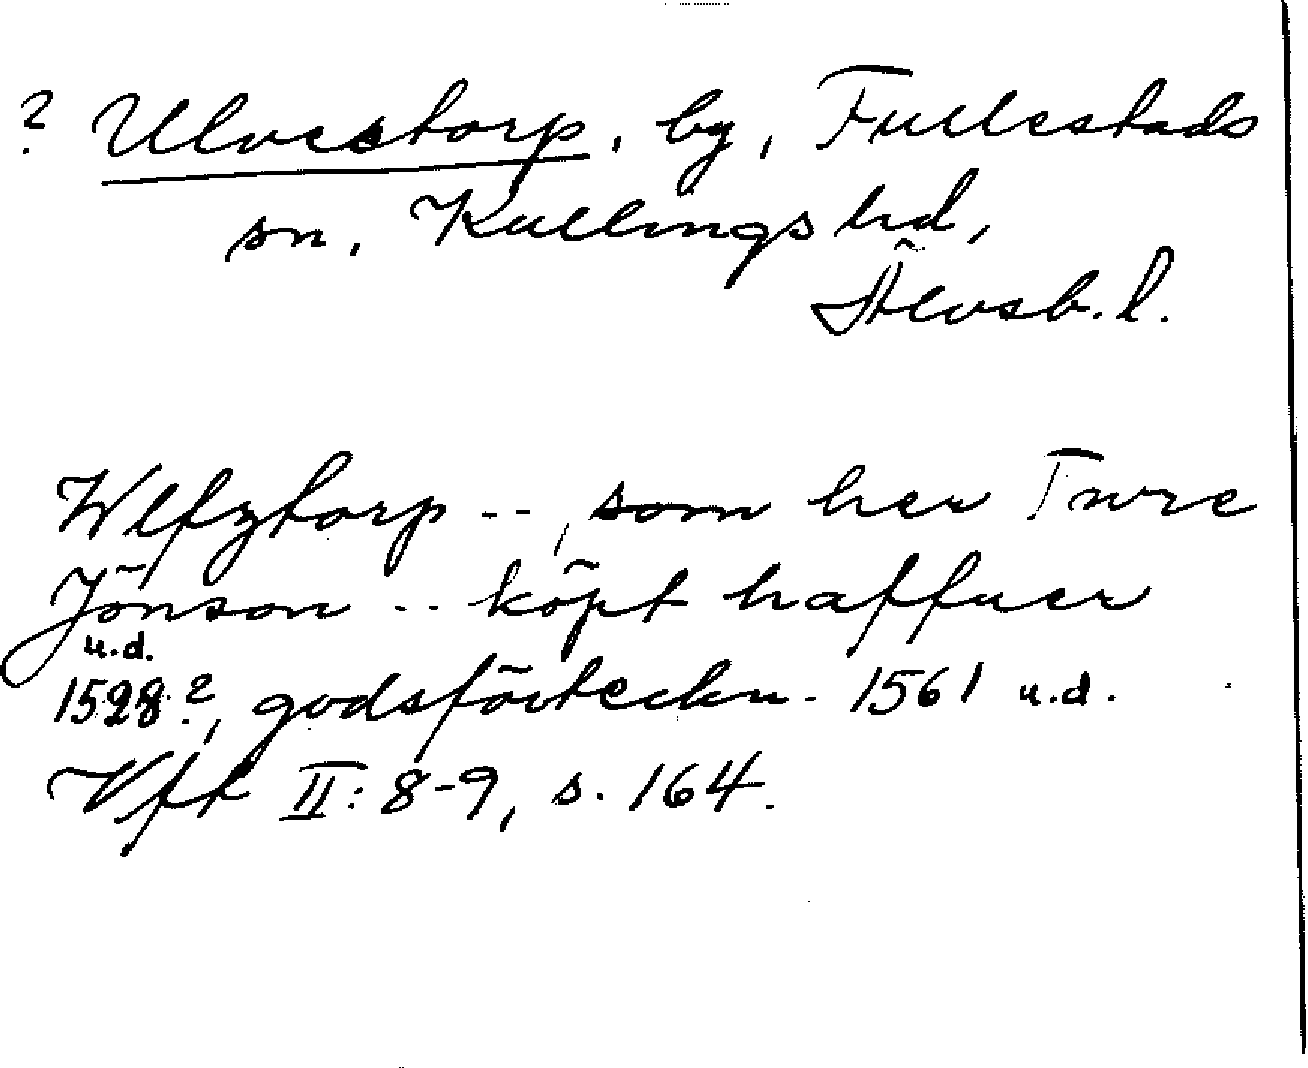 ? Ulvestorp, by, Fullestads
sn, Kullings hd,
Älvsb. l.
Wlfztorp --, som her Twre
Jönson -- köpt haffuer
u.d.
1528?, godsförteckn. 1561 u.d.
Vff II: 8-9, s. 164.